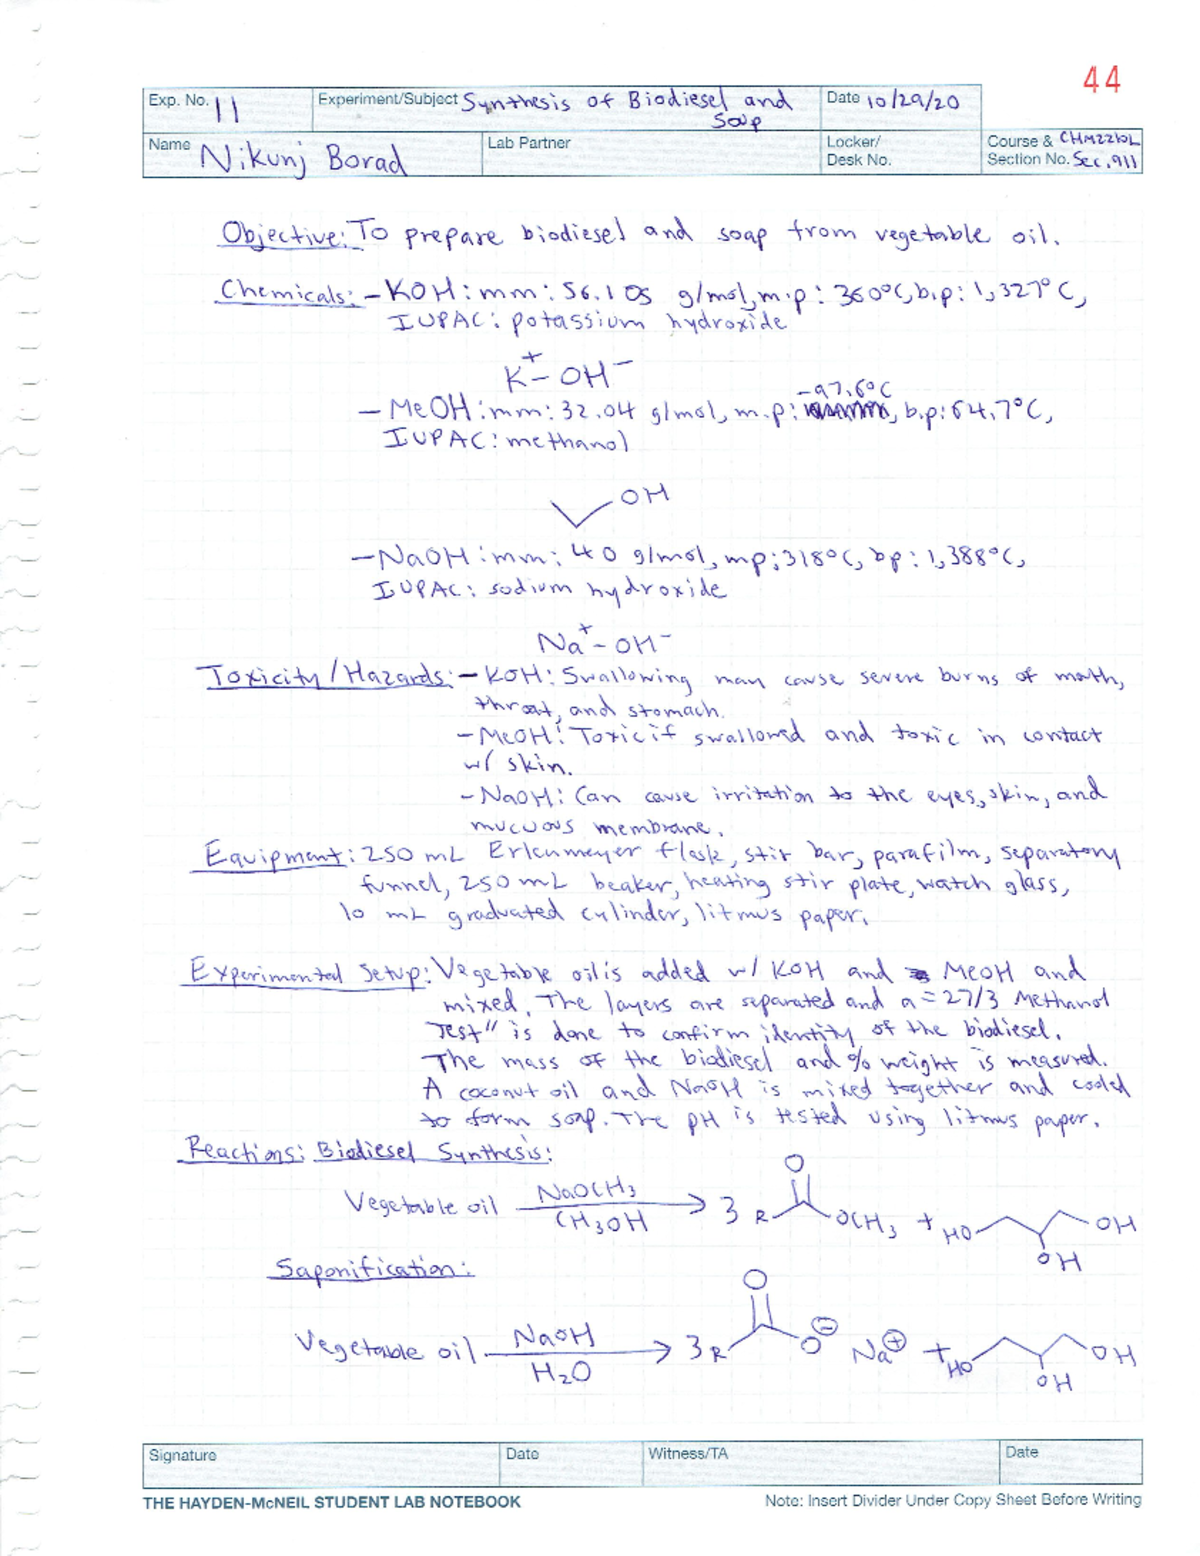 44
Exp. No. 11
Experiment/Subject Synthesis of Biodiesel and
Soap
Date 10/29/20
Name Nikunj Borad
Lab Partner
Locker/
Desk No.
Course & CHM2210L
Section No. Sec. 911
Objective: To prepare biodiesel and soap from vegetable oil.
Chemicals: - KOH: mm: 56.105 g/mol, m.p: 360°C, b.p: 1,327°C,
IUPAC: potassium hydroxide
K+ - OH-
-97.6°C
- MeOH: mm: 32.04 g/mol, m.p: , b.p: 64.7°C,
IUPAC: methanol
OH
- NaOH: mm: 40 g/mol, mp: 318°C, bp: 1,388°C,
IUPAC: sodium hydroxide
Na+ - OH-
Toxicity/Hazards: - KOH: Swallowing may cause severe burns of moth,
throat, and stomach.
- MeOH: Toxic if swallowed and toxic in contact
w/ skin.
- NaOH: Can cause irritation to the eyes, skin, and
mucuous membrane.
Equipment: 250 mL Erlenmeyer flask, stir bar, parafilm, separatory
funnel, 250 mL beaker, heating stir plate, watch glass,
10 mL graduated cylinder, litmus paper.
Experimental Setup: Vegetable oil is added w/ KOH and MeOH and
mixed. The layers are separated and a "27/3 Methanol
Test" is done to confirm identity of the biodiesel.
The mass of the biodiesel and % weight is measured.
A coconut oil and NaOH is mixed together and cooled
to form soap. The pH is tested using litmus paper.
Reactions: Biodiesel Synthesis:
Vegetable oil NaOCH3 → 3 R O OCH3 + HO OH OH
CH3OH
Saponification:
Vegetable oil NaOH → 3 R O O⊖ Na⊕ + HO OH OH
H2O
Signature
Date
Witness/TA
Date
THE HAYDEN-McNEIL STUDENT LAB NOTEBOOK
Note: Insert Divider Under Copy Sheet Before Writing